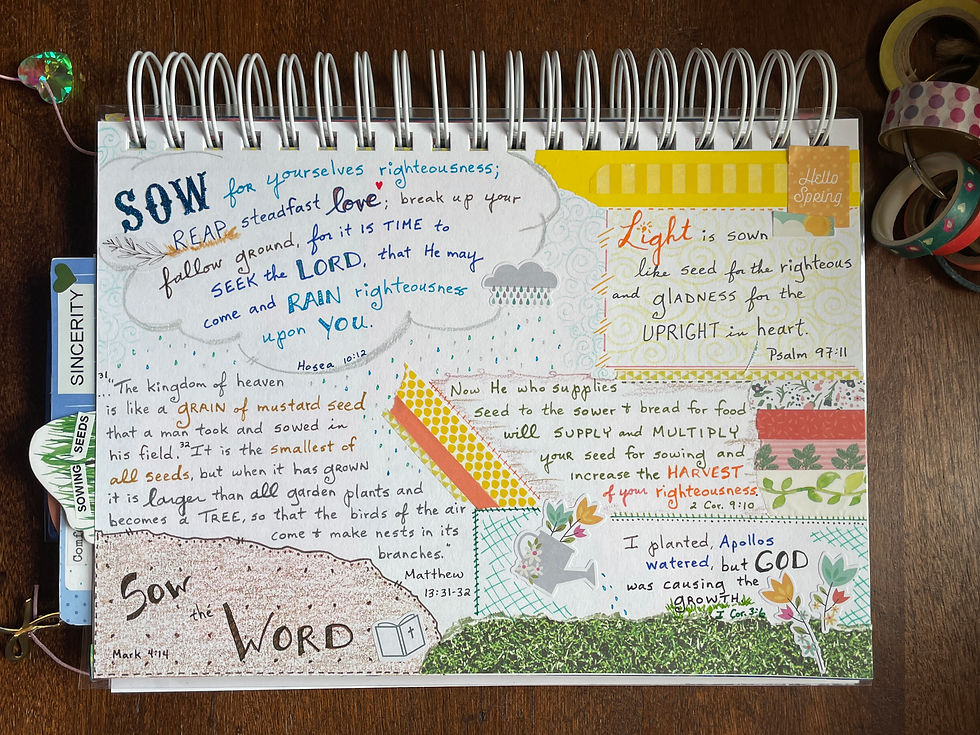 SOW for yourselves righteousness;
REAP steadfast love; break up your
fallow ground, for it IS TIME to
SEEK the LORD, that He may
come and RAIN righteousness
upon YOU.
Hosea 10:12
Hello
Spring
Light is sown
like seed for the righteous
and glADNESS for the
UPRIGHT in heart.
Psalm 97:11
SINCERITY
SOWING SEEDS
31"The kingdom of heaven
is like a GRAIN of mustard seed
that a man took and sowed in
his field. 32It is the smallest of
all seeds, but when it has grown
it is larger than all garden plants and
becomes a TREE, so that the birds of the air
come & make nests in its
branches."
Matthew
13:31-32
Now He who supplies
seed to the sower & bread for food
will SUPPLY and MULTIPLY
your seed for sowing and
increase the HARVEST
of your righteousness.
2 Cor. 9:10
I planted, Apollos
watered, but GOD
was causing the
growth.
I Cor. 3:6
Sow
the
WORD
Mark 4:14